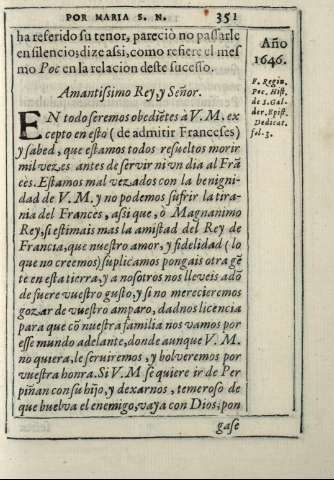 POR MARIA S. N. 351
ha referido su tenor, pareciò no passarle
en silencio; dize assi, como refiere el mes
mo Poc en la relacion deste sucesso.
Amantissimo Rey, y Señor.
EN todo seremos obediẽtes à V. M. ex
cepto en esto (de admitir Franceses)
y sabed, que estamos todos resueltos morir
mil vezes antes de servir ni vn dia al Frã
cès. Estamos mal vezados con la benigni-
dad de V. M. y no podemos sufrir la tira-
nia del Francès, assi que, ò Magnanimo
Rey, si estimais mas la amistad del Rey de
Francia, que nuestro amor, y fidelidad (lo
que no creemos) suplicamos pongais otra gẽ
te en esta tierra, y a nosotros nos lleveis adõ
de fuere vuestro gusto, y si no mereciéremos
gozar de vuestro amparo, dadnos licencia
para que cõ nuestra familia nos vamos por
esse mundo adelante, donde aunque V. M.
no quiera, le serviremos, y bolveremos por
vuestra honra. Si V. M se quiere ir de Per
piñan con su hijo, y dexarnos, temeroso de
que buelva el enemigo, vaya con Dios; pon
gase
Año
1646.
F. Regin.
Poc, Hist.
de S. Gal-
der, Epist.
Dedicat.
fol. 3.